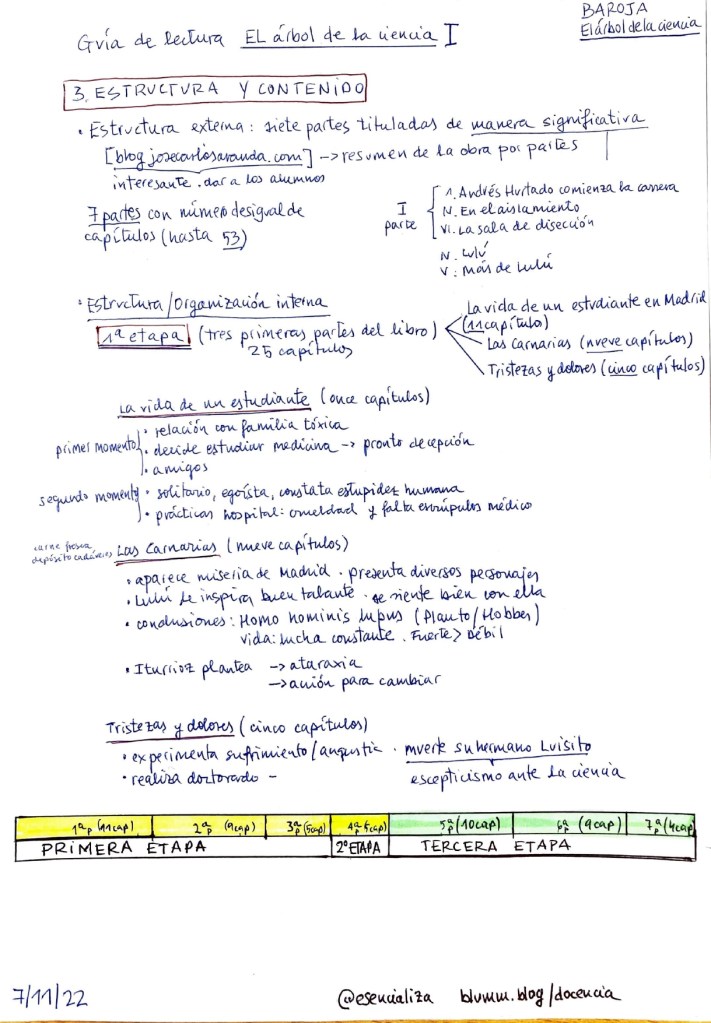 BAROJA
El árbol de la ciencia
Guía de lectura EL árbol de la ciencia I
3. ESTRUCTURA Y CONTENIDO
• Estructura externa: siete partes tituladas de manera significativa
[blog josecarlosaranda.com] → resumen de la obra por partes
interesante. dar a los alumnos
7 partes con número desigual de
capítulos (hasta 53)
I parte
1. Andrés Hurtado comienza la carrera
IV. En el aislamiento
VI. La sala de disección
IV. Lulú
V: más de Lulú
• Estructura/Organización interna
1ª etapa (tres primeras partes del libro)
25 capítulos
La vida de un estudiante en Madrid
(11 capítulo)
Las Carnarias (nueve capítulos)
Tristezas y dolores (cinco capítulos)
La vida de un estudiante (once capítulos)
primer momento
• relación con familia tóxica
• decide estudiar medicina → pronto decepción
• amigos
segundo momento
• solitario, egoísta, constata estupidez humana
• prácticas hospital: crueldad y falta escrúpulos médico
carne fresca
depósito cadáveres
Las Carnarias (nueve capítulos)
• aparece miseria de Madrid • presenta diversos personajes
• Lulú le inspira buen talante • se siente bien con ella
• conclusiones: Homo hominis lupus (Plauto/Hobbes)
vida: lucha constante. Fuerte > Débil
• Iturrioz plantea → ataraxia
→ acción para cambiar
Tristezas y dolores (cinco capítulos)
• experimenta sufrimiento/angustia • muerte su hermano Luisito
• realiza doctorado -
escepticismo ante la ciencia
1ªp (11 cap) 2ªp (9 cap) 3ªp (5 cap) 4ªp (5 cap) 5ªp (10 cap) 6ªp (9 cap) 7ªp (4 cap)
PRIMERA ETAPA 2ª ETAPA TERCERA ETAPA
7/11/22
@esencializa blumm.blog/docencia